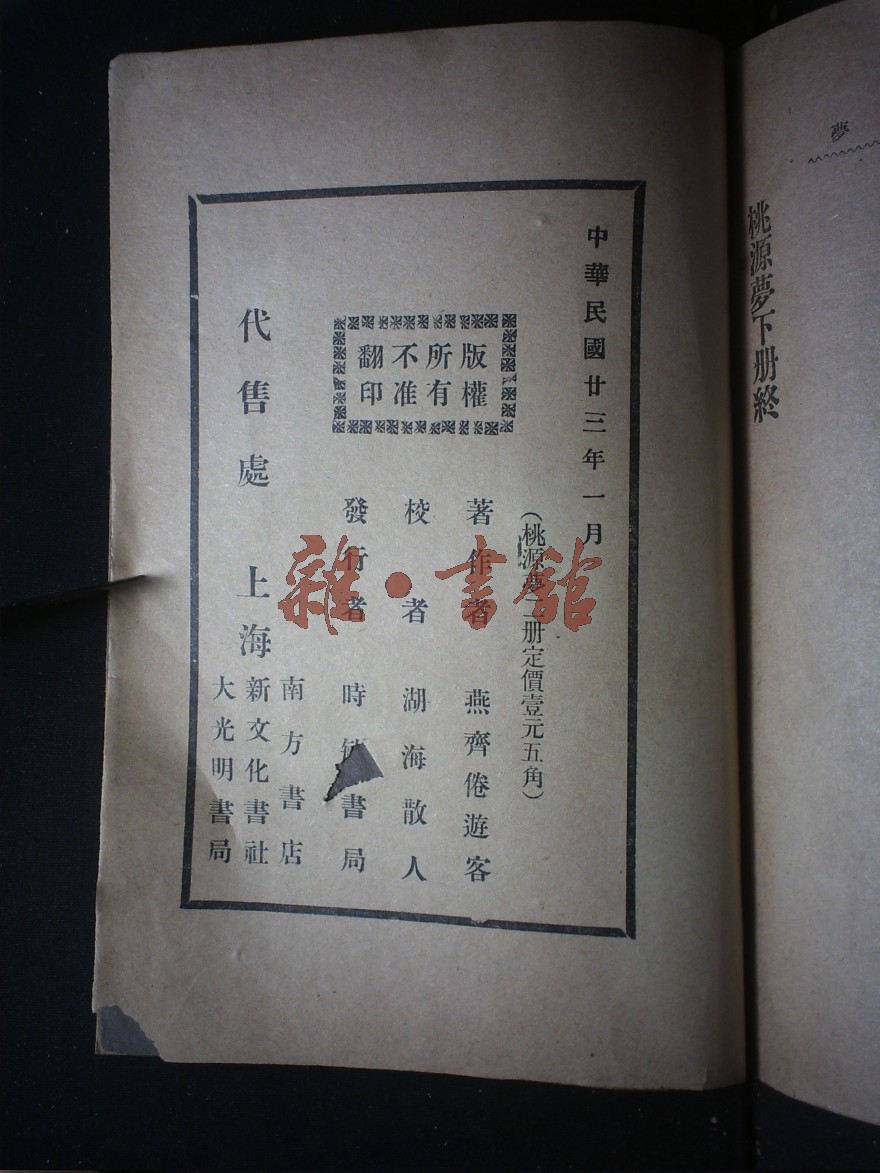 夢
桃源夢下册終
中華民國廿三年一月
(桃源夢二册定價壹元五角)
版權所有不准翻印
著作者 燕齊倦遊客
校者 湖海散人
發行者 時書局
代售處 上海
南方書店
新文化書社
大光明書局
雜·書館